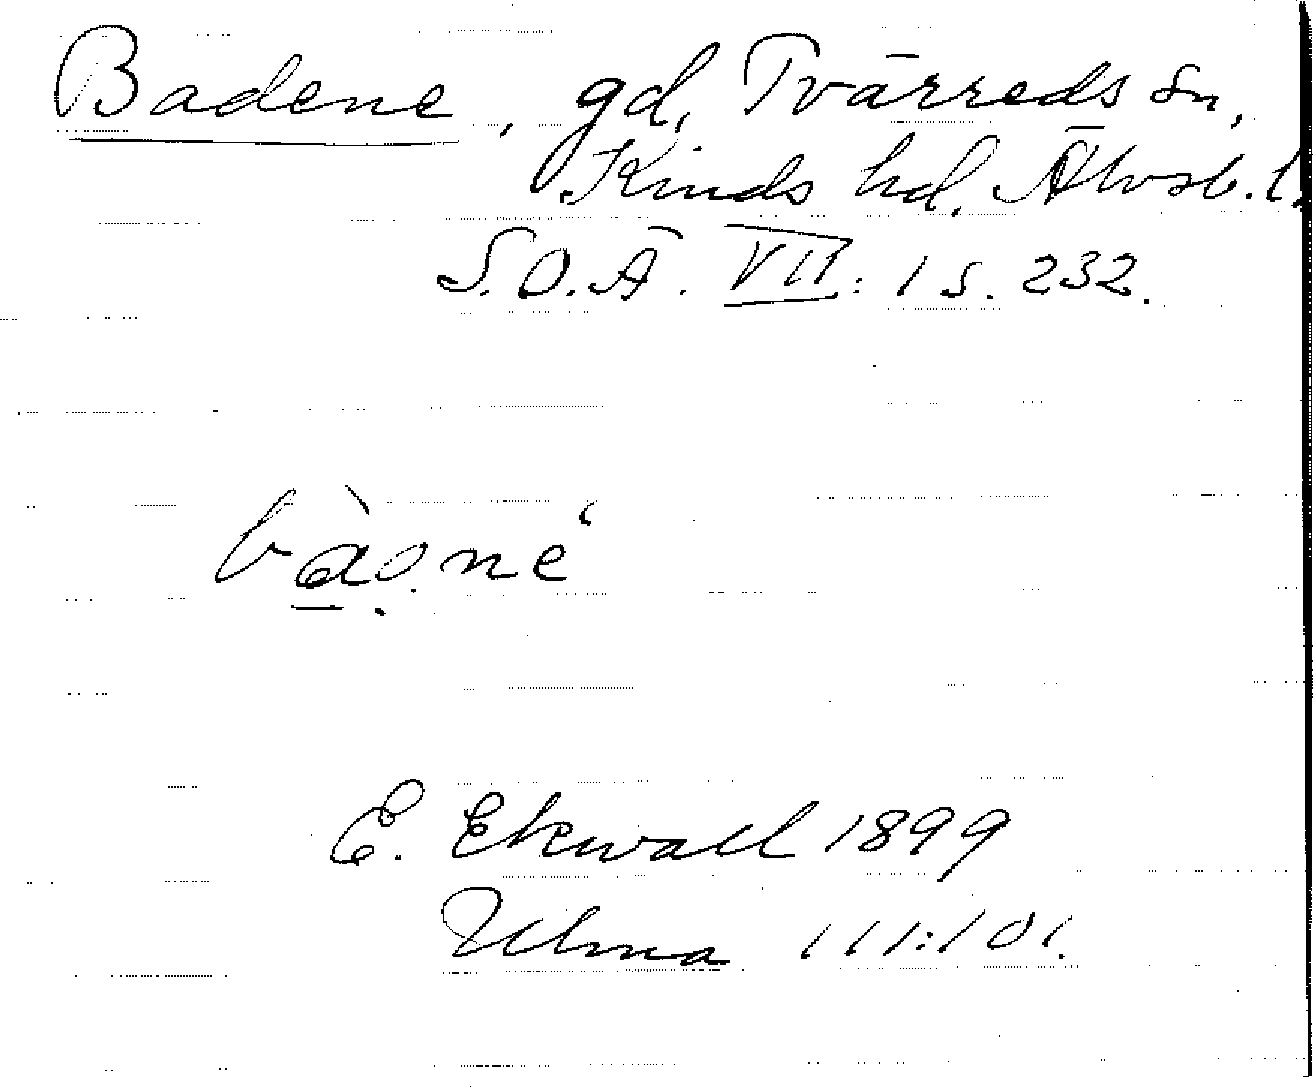 Badene, gd, Tvärreds sn,
Kinds hd. Älvsb. l.
S.O.Ä. VII: 1 s. 232.
E. Ekwall 1899
Ulma 111:101.